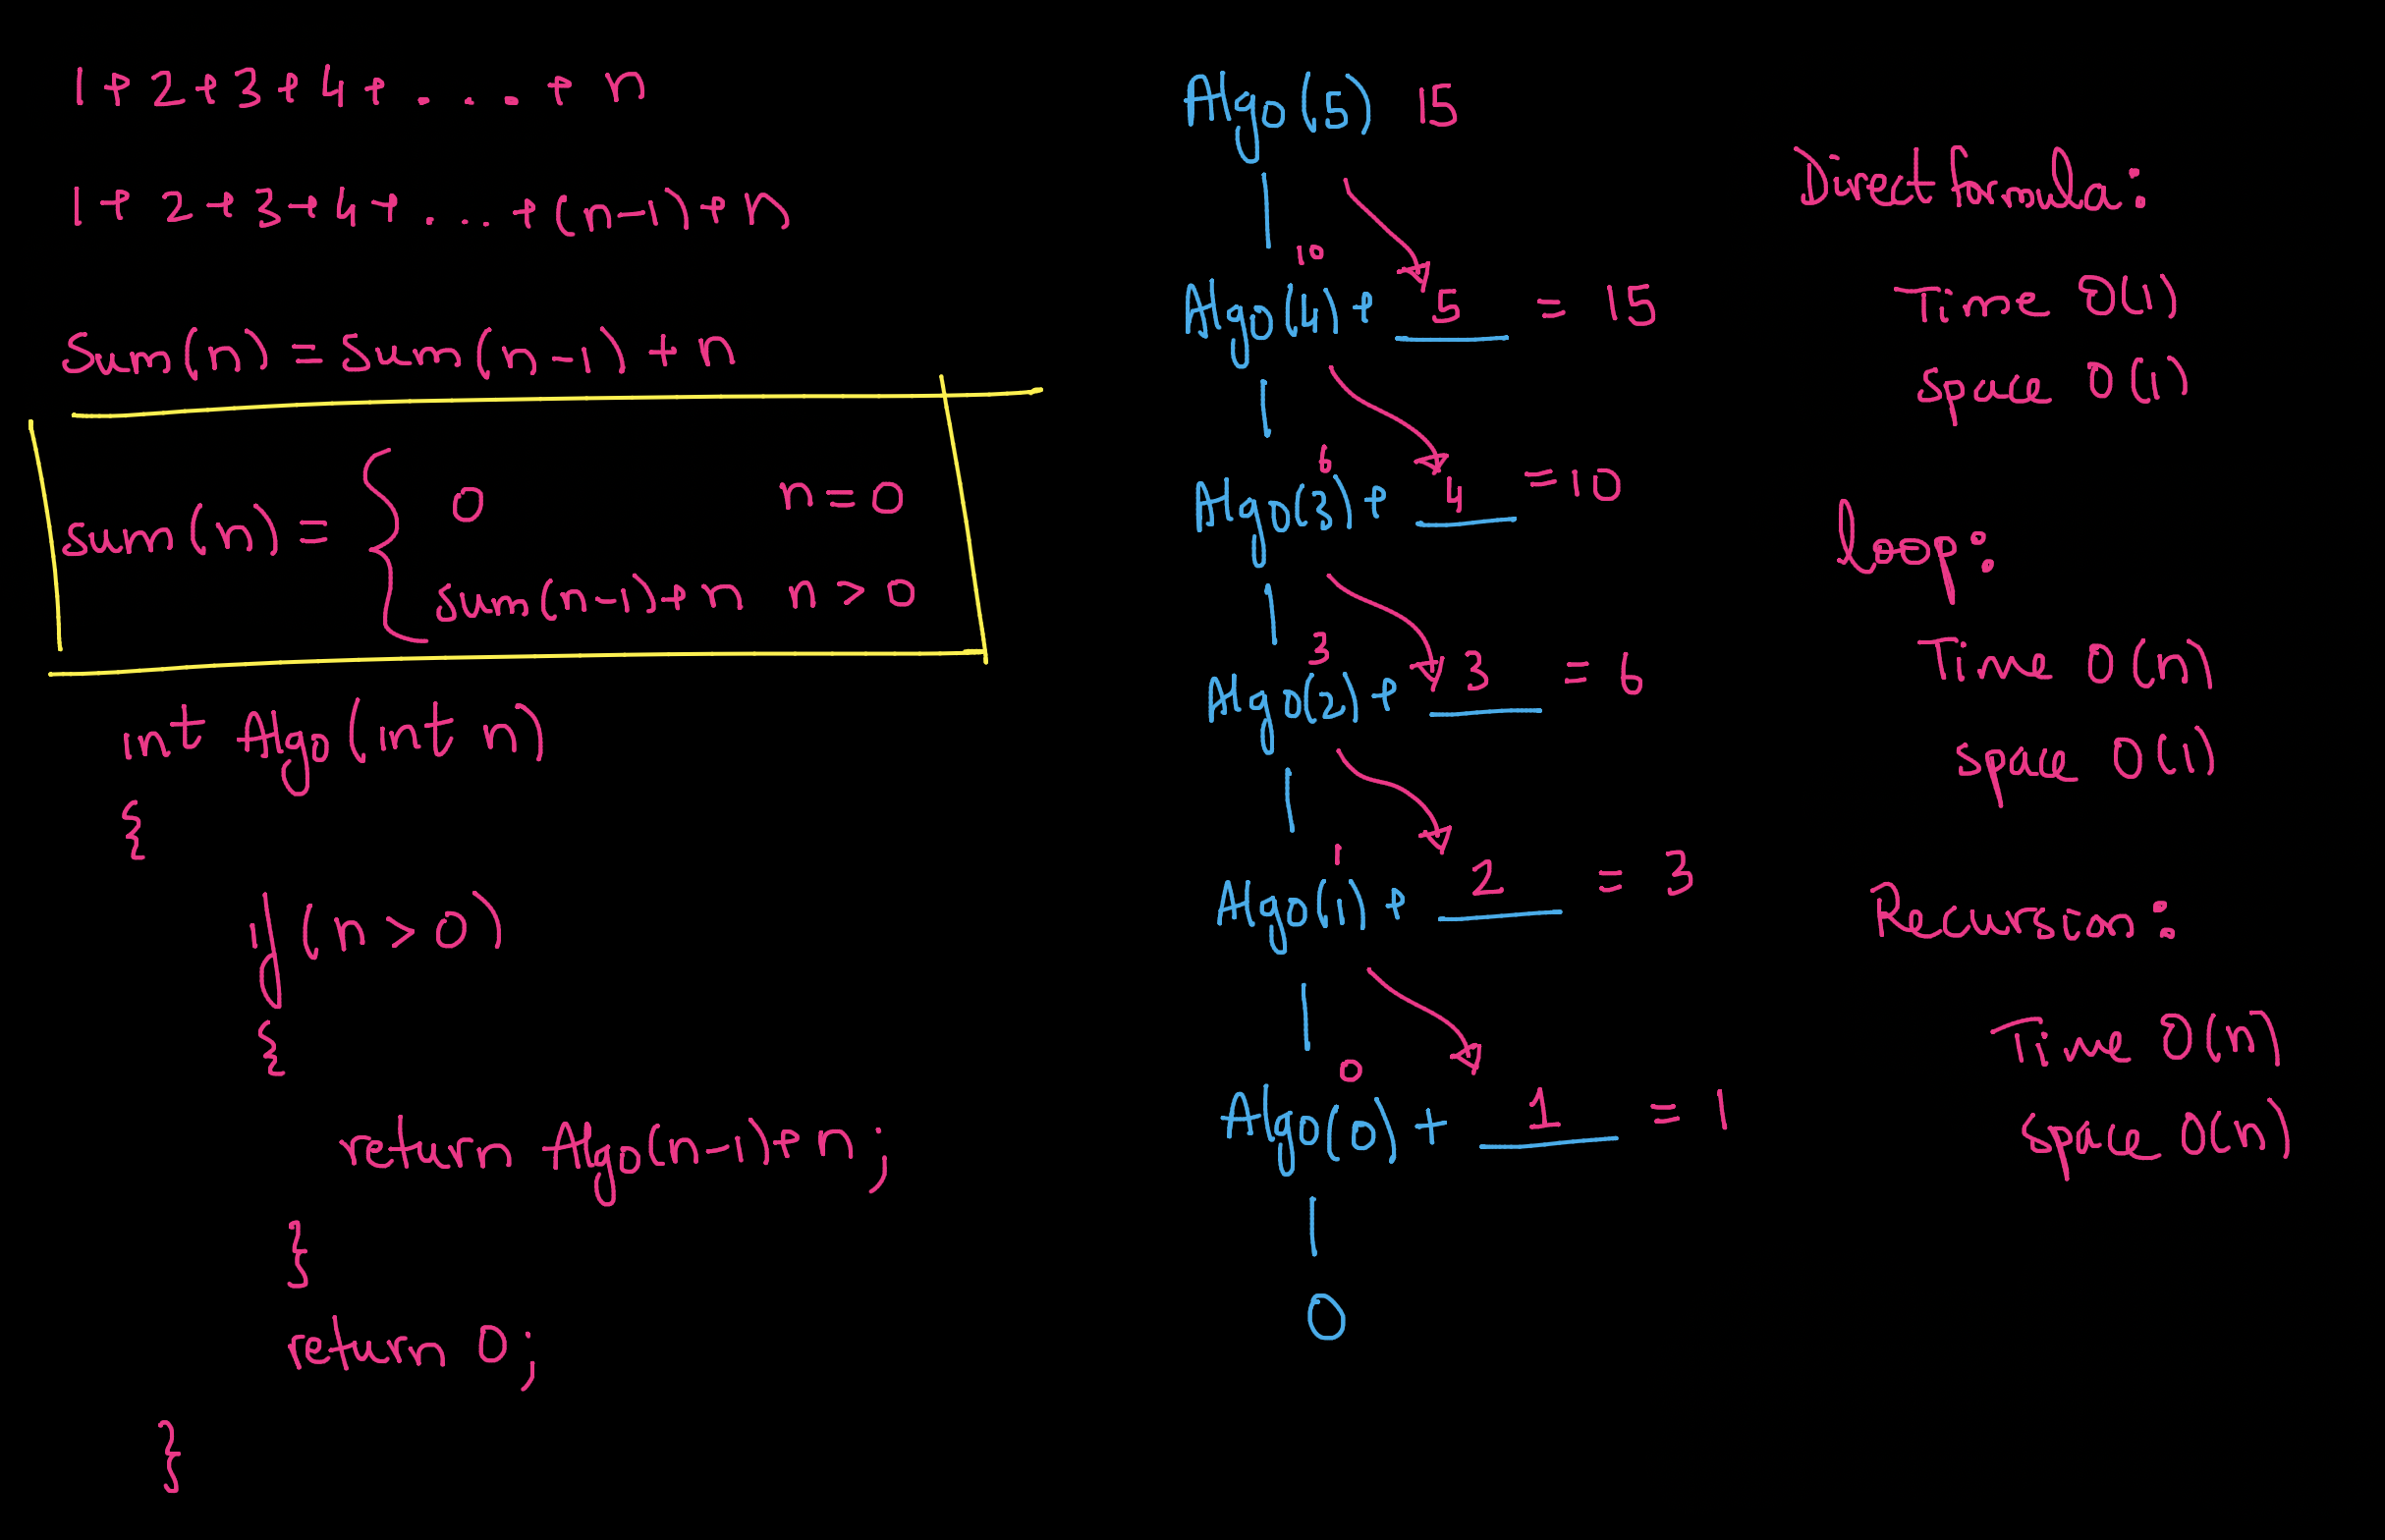 1+2+3+4+...+n
1+2+3+4+...+(n-1)+n
Sum(n)=Sum(n-1)+n
sum(n)= { 0 n=0
sum(n-1)+n n>0
int Algo(int n)
{
if(n>0)
{
return Algo(n-1)+n;
}
return 0;
}
Algo(5) 15
10
Algo(4)+ 5 = 15
6
Algo(3)+ 4 =10
3
Algo(2)+ 3 = 6
1
Algo(1)+ 2 = 3
0
Algo(0)+ 1 = 1
0
Direct formula:
Time O(1)
space O(1)
loop:
Time O(n)
space O(1)
Recursion:
Time O(n)
space O(n)